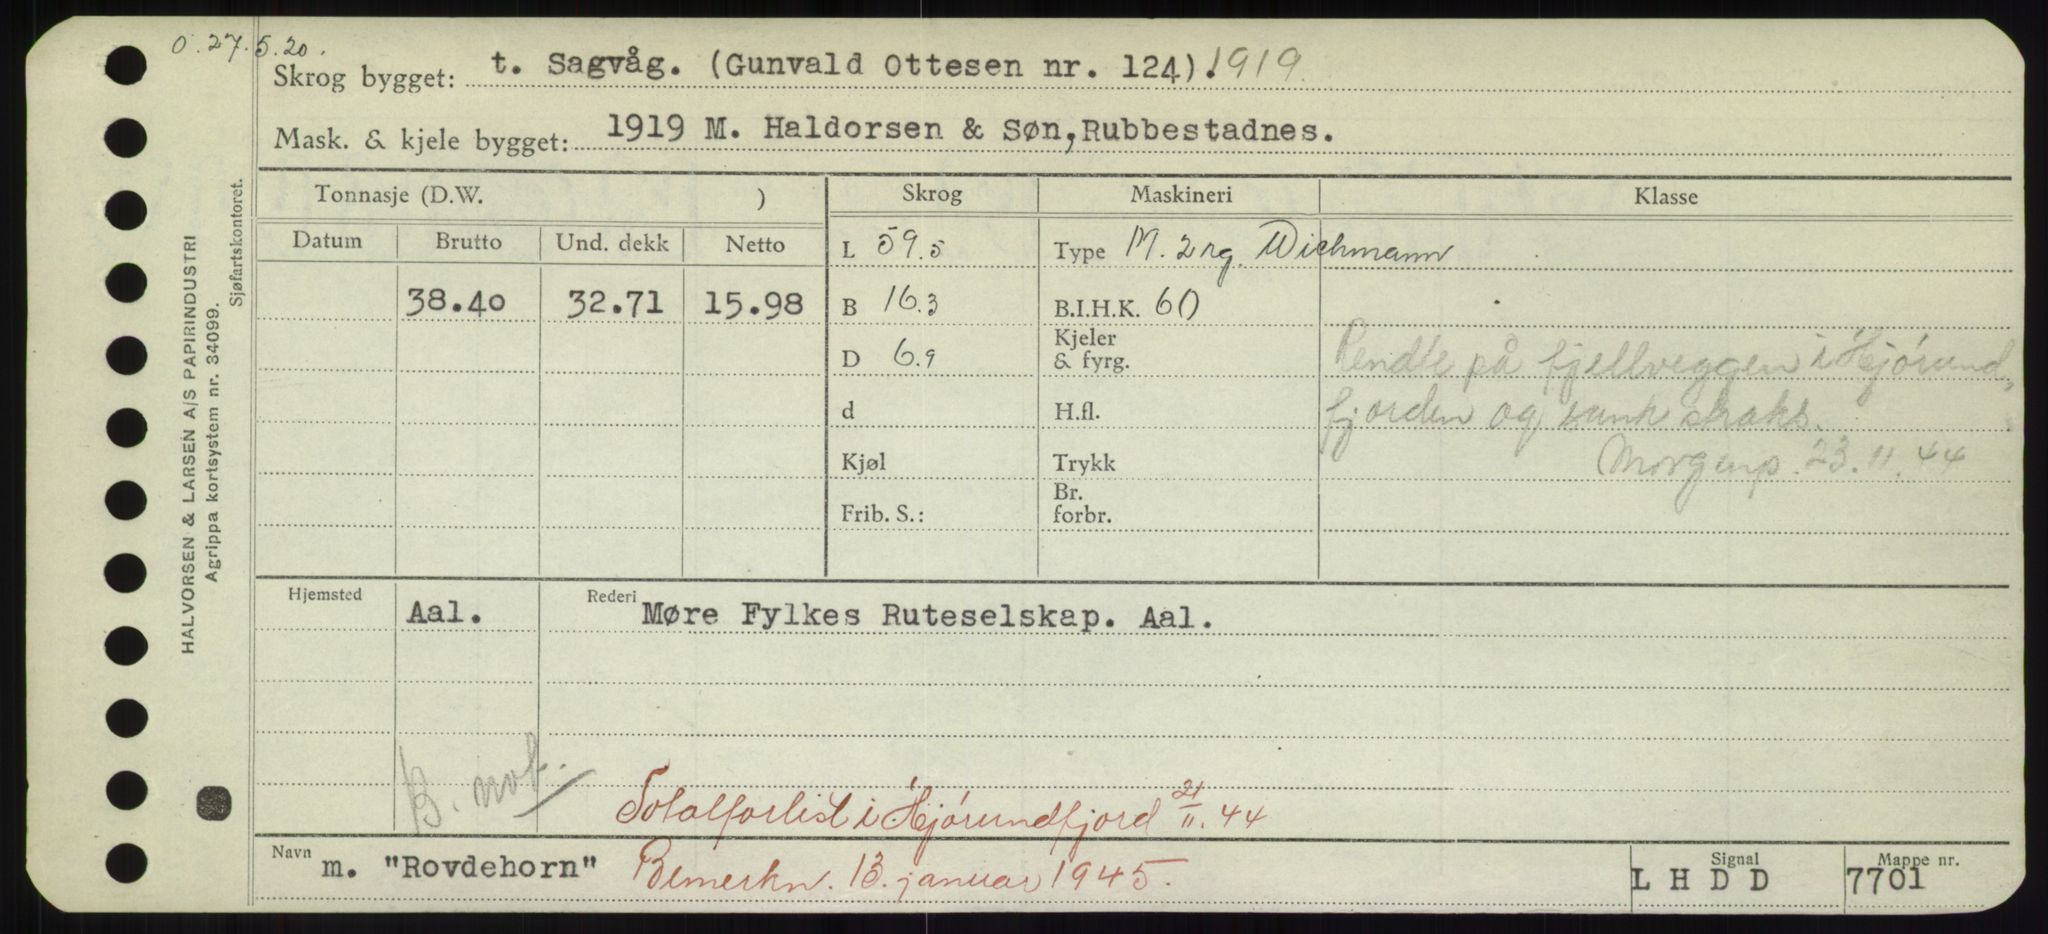 O. 27.5.20.
Skrog bygget: t. Sagvåg. (Gunvald Ottesen nr. 124). 1919.
Mask. & kjele bygget: 1919 M. Haldorsen & Søn, Rubbestadnes.
Tonnasje (D.W. ) Skrog Maskineri Klasse
Datum Brutto Und. dekk Netto L 59.5 Type M. 2 sg. Wichmann
38.40 32.71 15.98 B 16.3 B.I.H.K. 60
D 6.9 Kjeler & fyrg. Rendte på fjellveggen i Hjørund-
d H.fl. fjorden og sank straks.
Kjøl Trykk Morgenp. 23.11.44
Frib. S.: Br. forbr.
Hjemsted Aal. Rederi Møre Fylkes Ruteselskap. Aal.
B. not.
Totalforlist i Hjørundfjord 21/11.44
Navn m. "Rovdehorn" Bemerkn. 13. januar 1945. Signal L H D D Mappe nr. 7701
HALVORSEN & LARSEN A/S PAPIRINDUSTRI
Agrippa kortsystem nr. 34099.
Sjøfartskontoret.